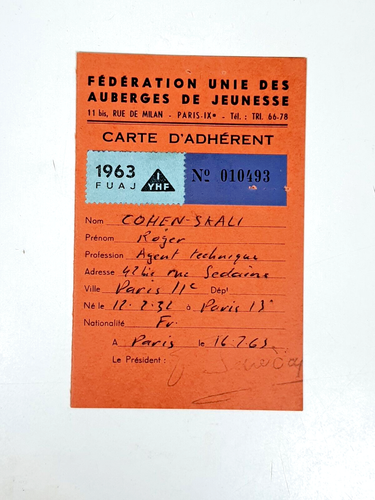 FÉDÉRATION UNIE DES
AUBERGES DE JEUNESSE
11 bis, RUE DE MILAN - PARIS-IXe - Tél. : TRI. 66-78
CARTE D'ADHÉRENT
1963 FUAJ
I YHF
No 010493
Nom COHEN-SKALI
Prénom Roger
Profession Agent technique
Adresse 42 bis rue Sedaine
Ville Paris 11e Dépt
Né le 12.2.32 à Paris 13e
Nationalité Fr.
A Paris le 16.7.63
Le Président :